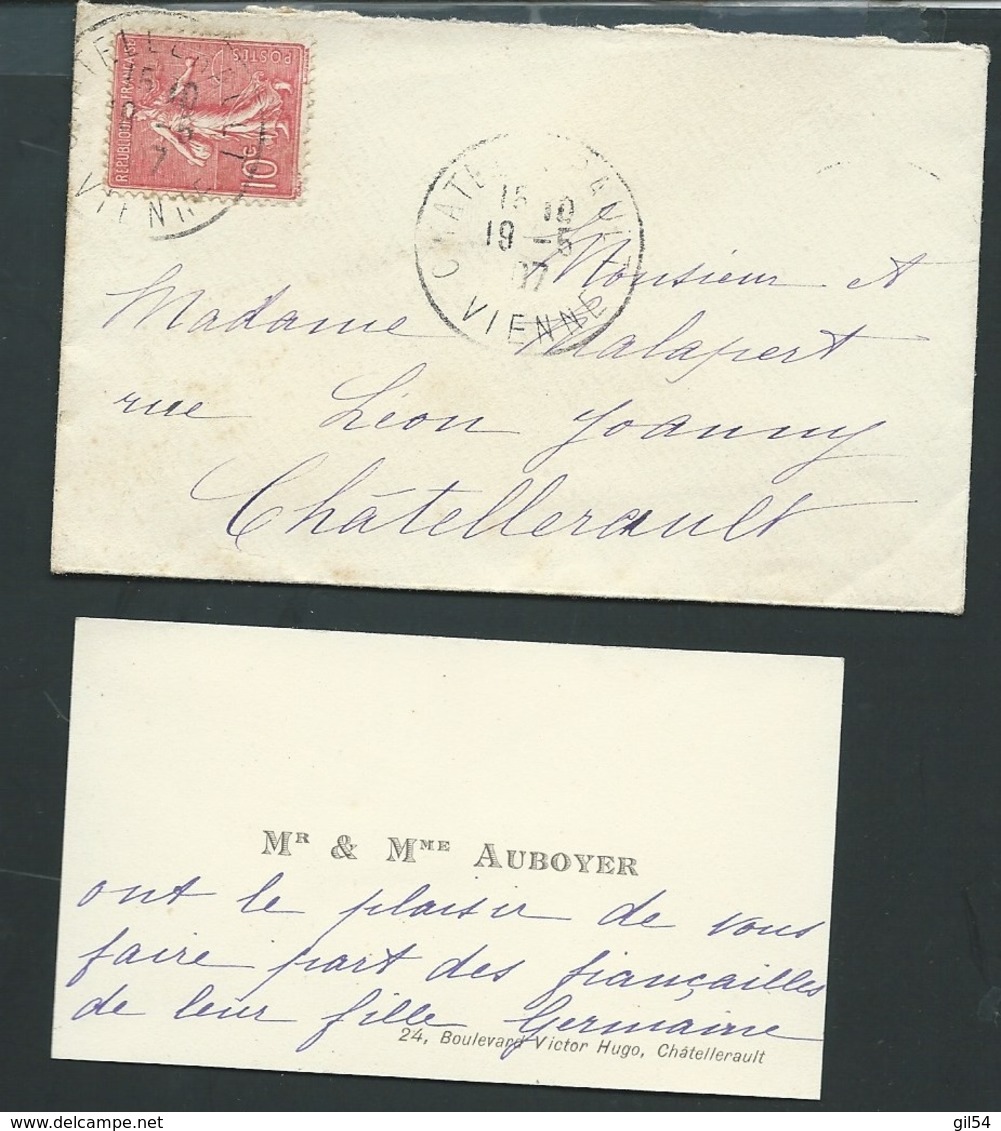 POSTES
REPUBLIQUE FRANCAISE
10c
15 10
VIENNE
15 10
19 -5
07
VIENNE
Monsieur et
Madame Malapert
rue Léon Joanny
Châtellerault
MR & MME AUBOYER
ont le plaisir de vous
faire part des fiançailles
de leur fille Germaine
24, Boulevard Victor Hugo, Châtellerault
gil54